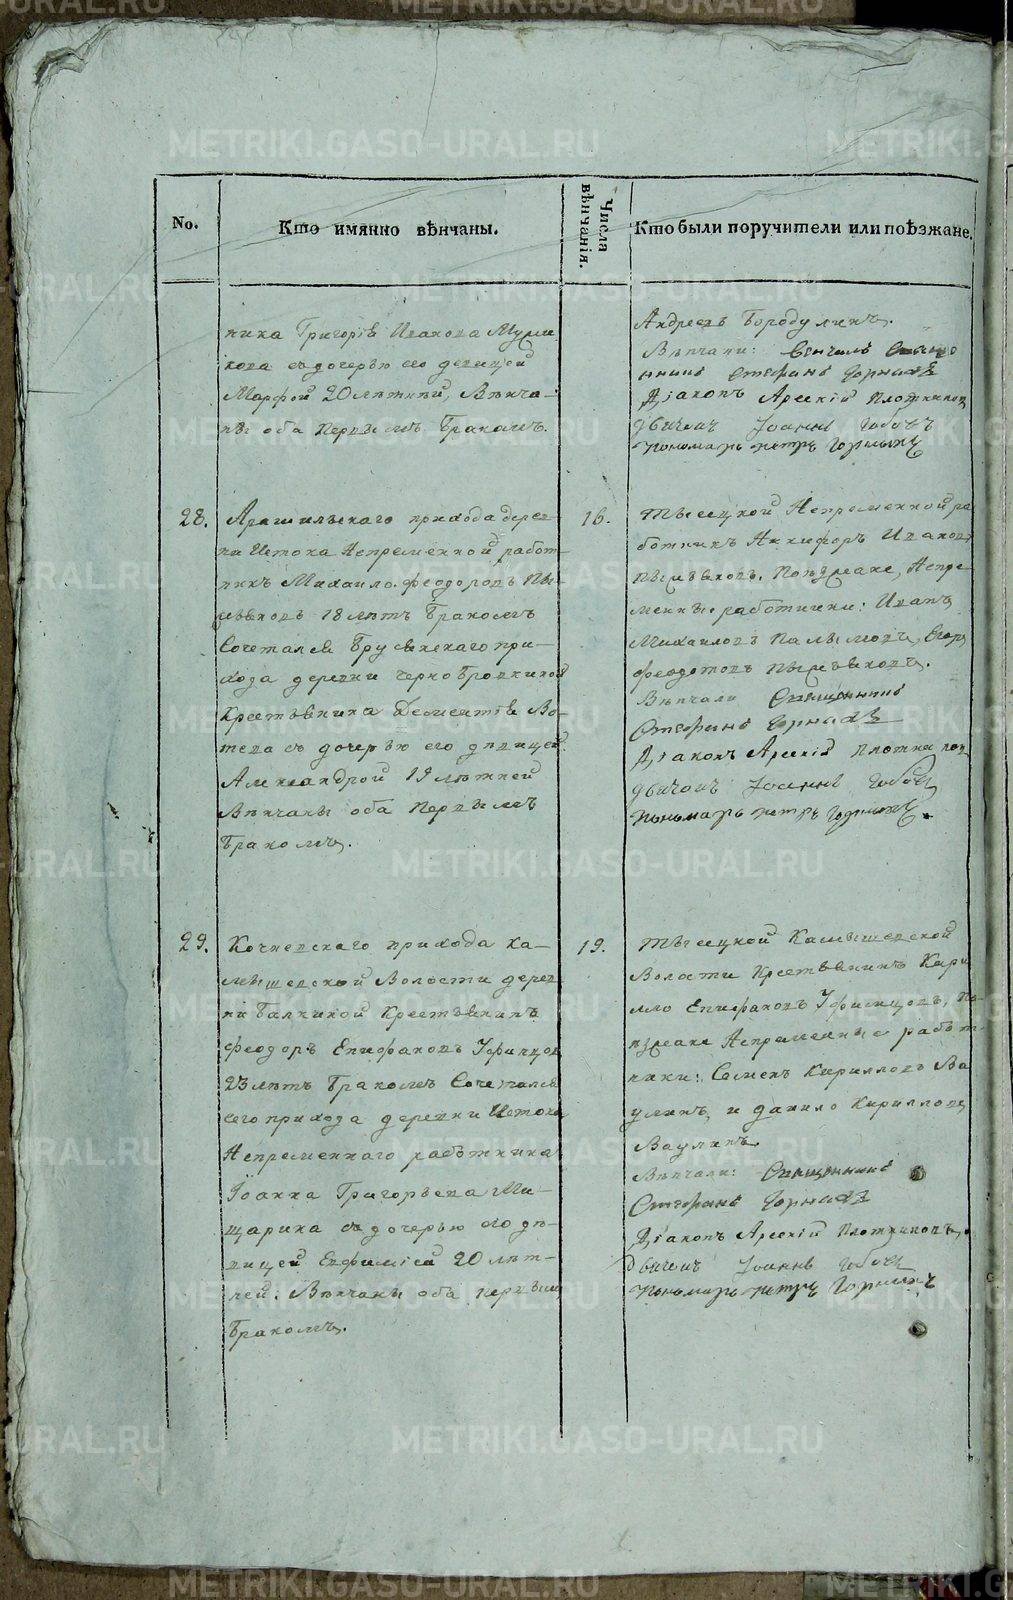 No.
Кто имянно вѣнчаны.
Числа вѣнчанія.
Кто были поручители или поѣзжане.
ника Григорія Иванова
кова съ дочерью его девицей
Марфой 20 лѣтней, Вѣнча-
ны оба первымъ бракомъ.
Андреевъ Бородулинъ.
Вѣнчали: Вѣнчалъ Свяще
нникъ Стефанъ
Діаконъ Арсеній Плотников
дьячокъ Іоаннъ
пономарь петръ
28.
прихода дерев-
ни Истока Непременной работ-
никъ Михаило Феодоровъ
18 лѣтъ бракомъ
Сочетался Бруснскаго при-
хода деревни чернобровкиной
Крестьянина Дементія
съ дочерью его девицей
Александрой 19 лѣтней
Вѣнчаны оба первымъ
бракомъ.
16.
Тысецкой Непременной ра
ботникъ Никифоръ Иванов
Поѣзжане, Непре
менные работники: Иванъ
Михайловъ Егоръ
Феодотовъ
Вѣнчали Священникъ
Стефанъ
Діаконъ Арсеній Плотников
дьячокъ Іоаннъ
пономарь петръ
29.
Кочневскаго прихода Ка-
мышевской Волости дерев
ни Балкиной Крестьянинъ
Феодоръ Епифановъ Уфинцов
23 лѣтъ бракомъ Сочетался
сего прихода деревни Истока
Непременнаго работника
Іоанна Григорьева Ми-
щарина съ дочерью его дѣ-
вицей Евфиміей 20 лѣт-
ней. Вѣнчаны оба первым
бракомъ.
19.
Тысецкой Камышевской
Волости Крестьянинъ Кири
ло Епифановъ Уфинцовъ, По-
ѣзжане Непременные работ-
ники: Семенъ Кирилловъ Ва
улинъ, и данило Кириллов
Ваулинъ.
Вѣнчали: Священникъ
Стефанъ
Діаконъ Арсеній Плотниковъ
дьячокъ Іоаннъ
пономарь петръ
METRIKI.GASO-URAL.RU